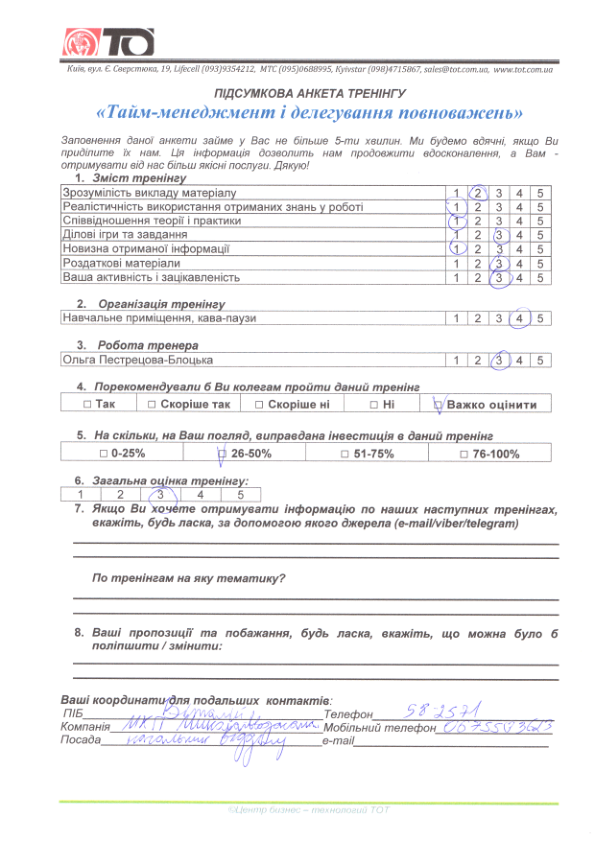 ТО
Київ, вул. Є. Сверстюка, 19, Lifecell (093)9354212, МТС (095)0688995, Kyivstar (098)4715867, sales@tot.com.ua, www.tot.com.ua
ПІДСУМКОВА АНКЕТА ТРЕНІНГУ
«Тайм-менеджмент і делегування повноважень»
Заповнення даної анкети займе у Вас не більше 5-ти хвилин. Ми будемо вдячні, якщо Ви
приділите їх нам. Ця інформація дозволить нам продовжити вдосконалення, а Вам -
отримувати від нас більш якісні послуги. Дякую!
1. Зміст тренінгу
Зрозумілість викладу матеріалу 1 2 3 4 5
Реалістичність використання отриманих знань у роботі 1 2 3 4 5
Співвідношення теорії і практики 1 2 3 4 5
Ділові ігри та завдання 1 2 3 4 5
Новизна отриманої інформації 1 2 3 4 5
Роздаткові матеріали 1 2 3 4 5
Ваша активність і зацікавленість 1 2 3 4 5
2. Організація тренінгу
Навчальне приміщення, кава-паузи 1 2 3 4 5
3. Робота тренера
Ольга Пестрецова-Блоцька 1 2 3 4 5
4. Порекомендували б Ви колегам пройти даний тренінг
□ Так □ Скоріше так □ Скоріше ні □ Ні □ Важко оцінити
5. На скільки, на Ваш погляд, виправдана інвестиція в даний тренінг
□ 0-25% □ 26-50% □ 51-75% □ 76-100%
6. Загальна оцінка тренінгу:
1 2 3 4 5
7. Якщо Ви хочете отримувати інформацію по наших наступних тренінгах,
вкажіть, будь ласка, за допомогою якого джерела (e-mail/viber/telegram)
По тренінгам на яку тематику?
8. Ваші пропозиції та побажання, будь ласка, вкажіть, що можна було б
поліпшити / змінити:
Ваші координати для подальших контактів:
ПІБ Віталій Телефон 58-2571
Компанія МКП Мобільний телефон
Посада начальник відділу e-mail
©Центр бизнес – технологий ТОТ